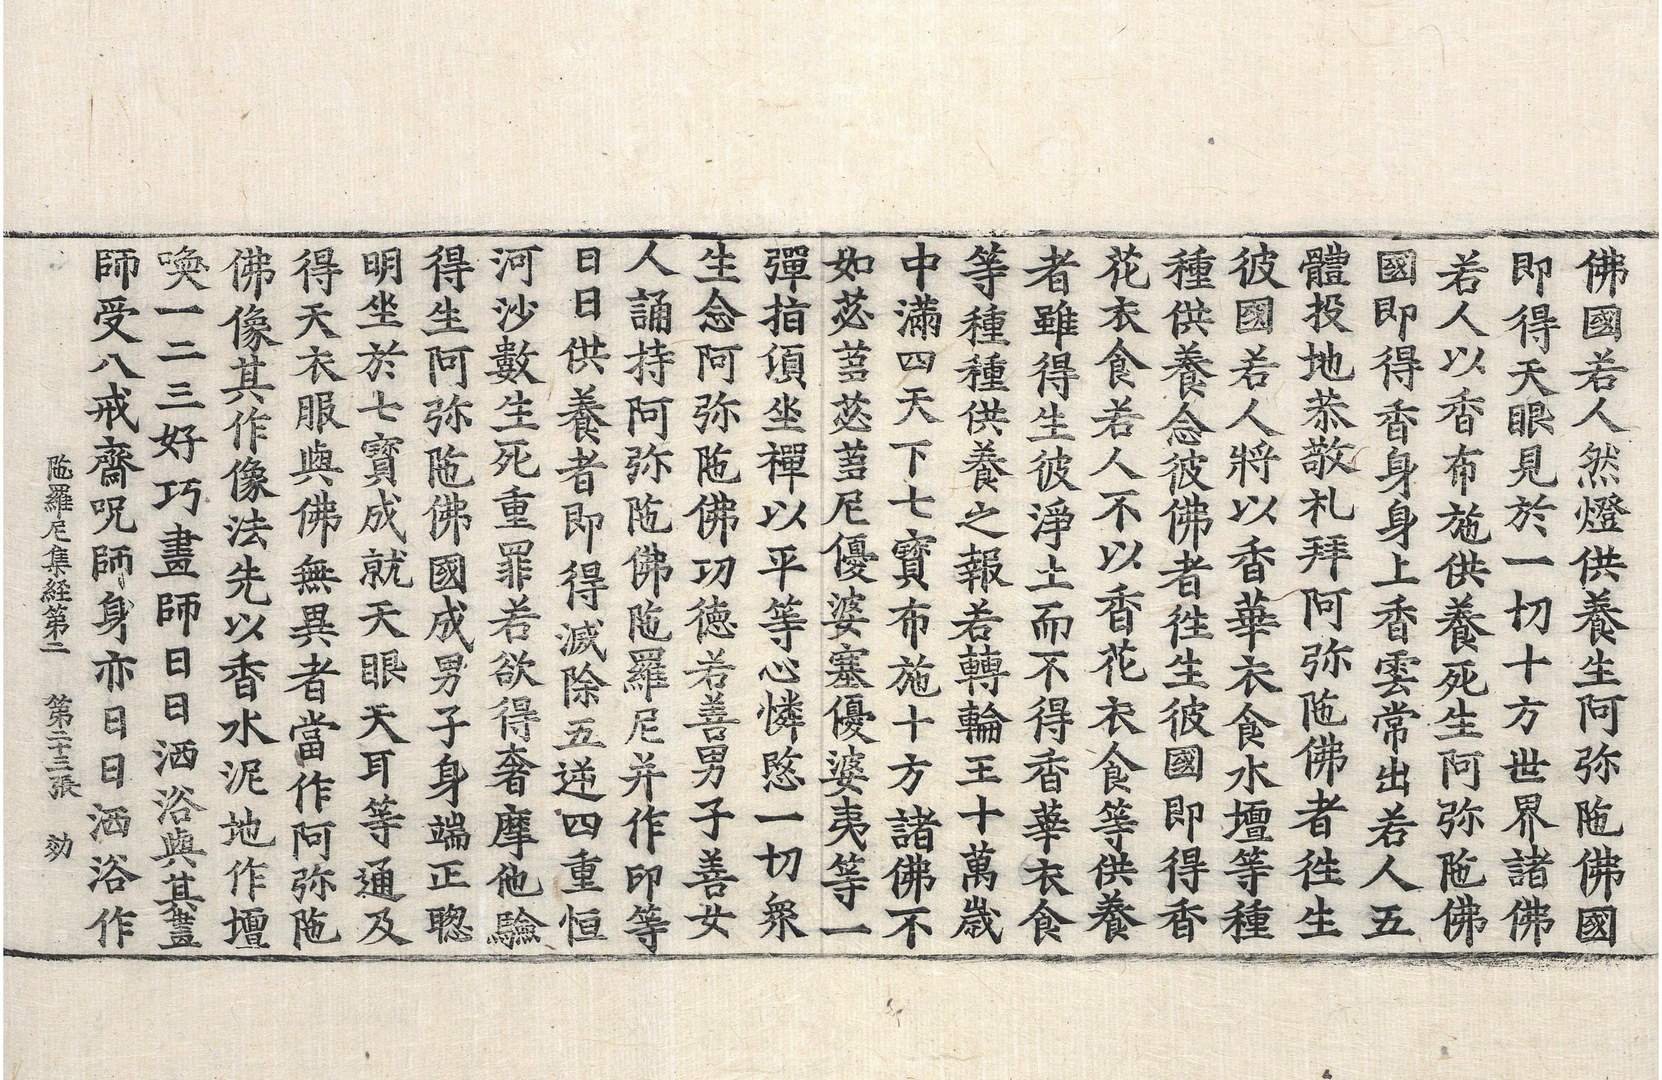 佛國若人然燈供養生阿弥陁佛國
即得天眼見於一切十方世界諸佛
若人以香布施供養死生阿弥陁佛
國即得香身身上香雲常出若人五
體投地恭敬礼拜阿弥陁佛者徃生
彼國若人將以香華衣食水壇等種
種供養念彼佛者徃生彼國即得香
花衣食若人不以香花衣食等供養
者雖得生彼淨土而不得香華衣食
等種種供養之報若轉輪王十萬歲
中滿四天下七寳布施十方諸佛不
如苾蒭苾蒭尼優婆塞優婆夷等一
彈指項坐禪以平等心憐愍一切衆
生念阿弥陁佛功德若善男子善女
人誦持阿弥陁佛陁羅尼并作印等
日日供養者即得滅除五逆四重恒
河沙數生死重罪若欲得奢摩他驗
得生阿弥陁佛國成男子身端正聦
明坐於七寳成就天眼天耳等通及
得天衣服與佛無異者當作阿弥陁
佛像其作像法先以香水泥地作壇
喚一二三好巧畫師日日洒浴與其畫
師受八戒齋呪師身亦日日洒浴作
陁羅尼集経第二 第二十三張 劾